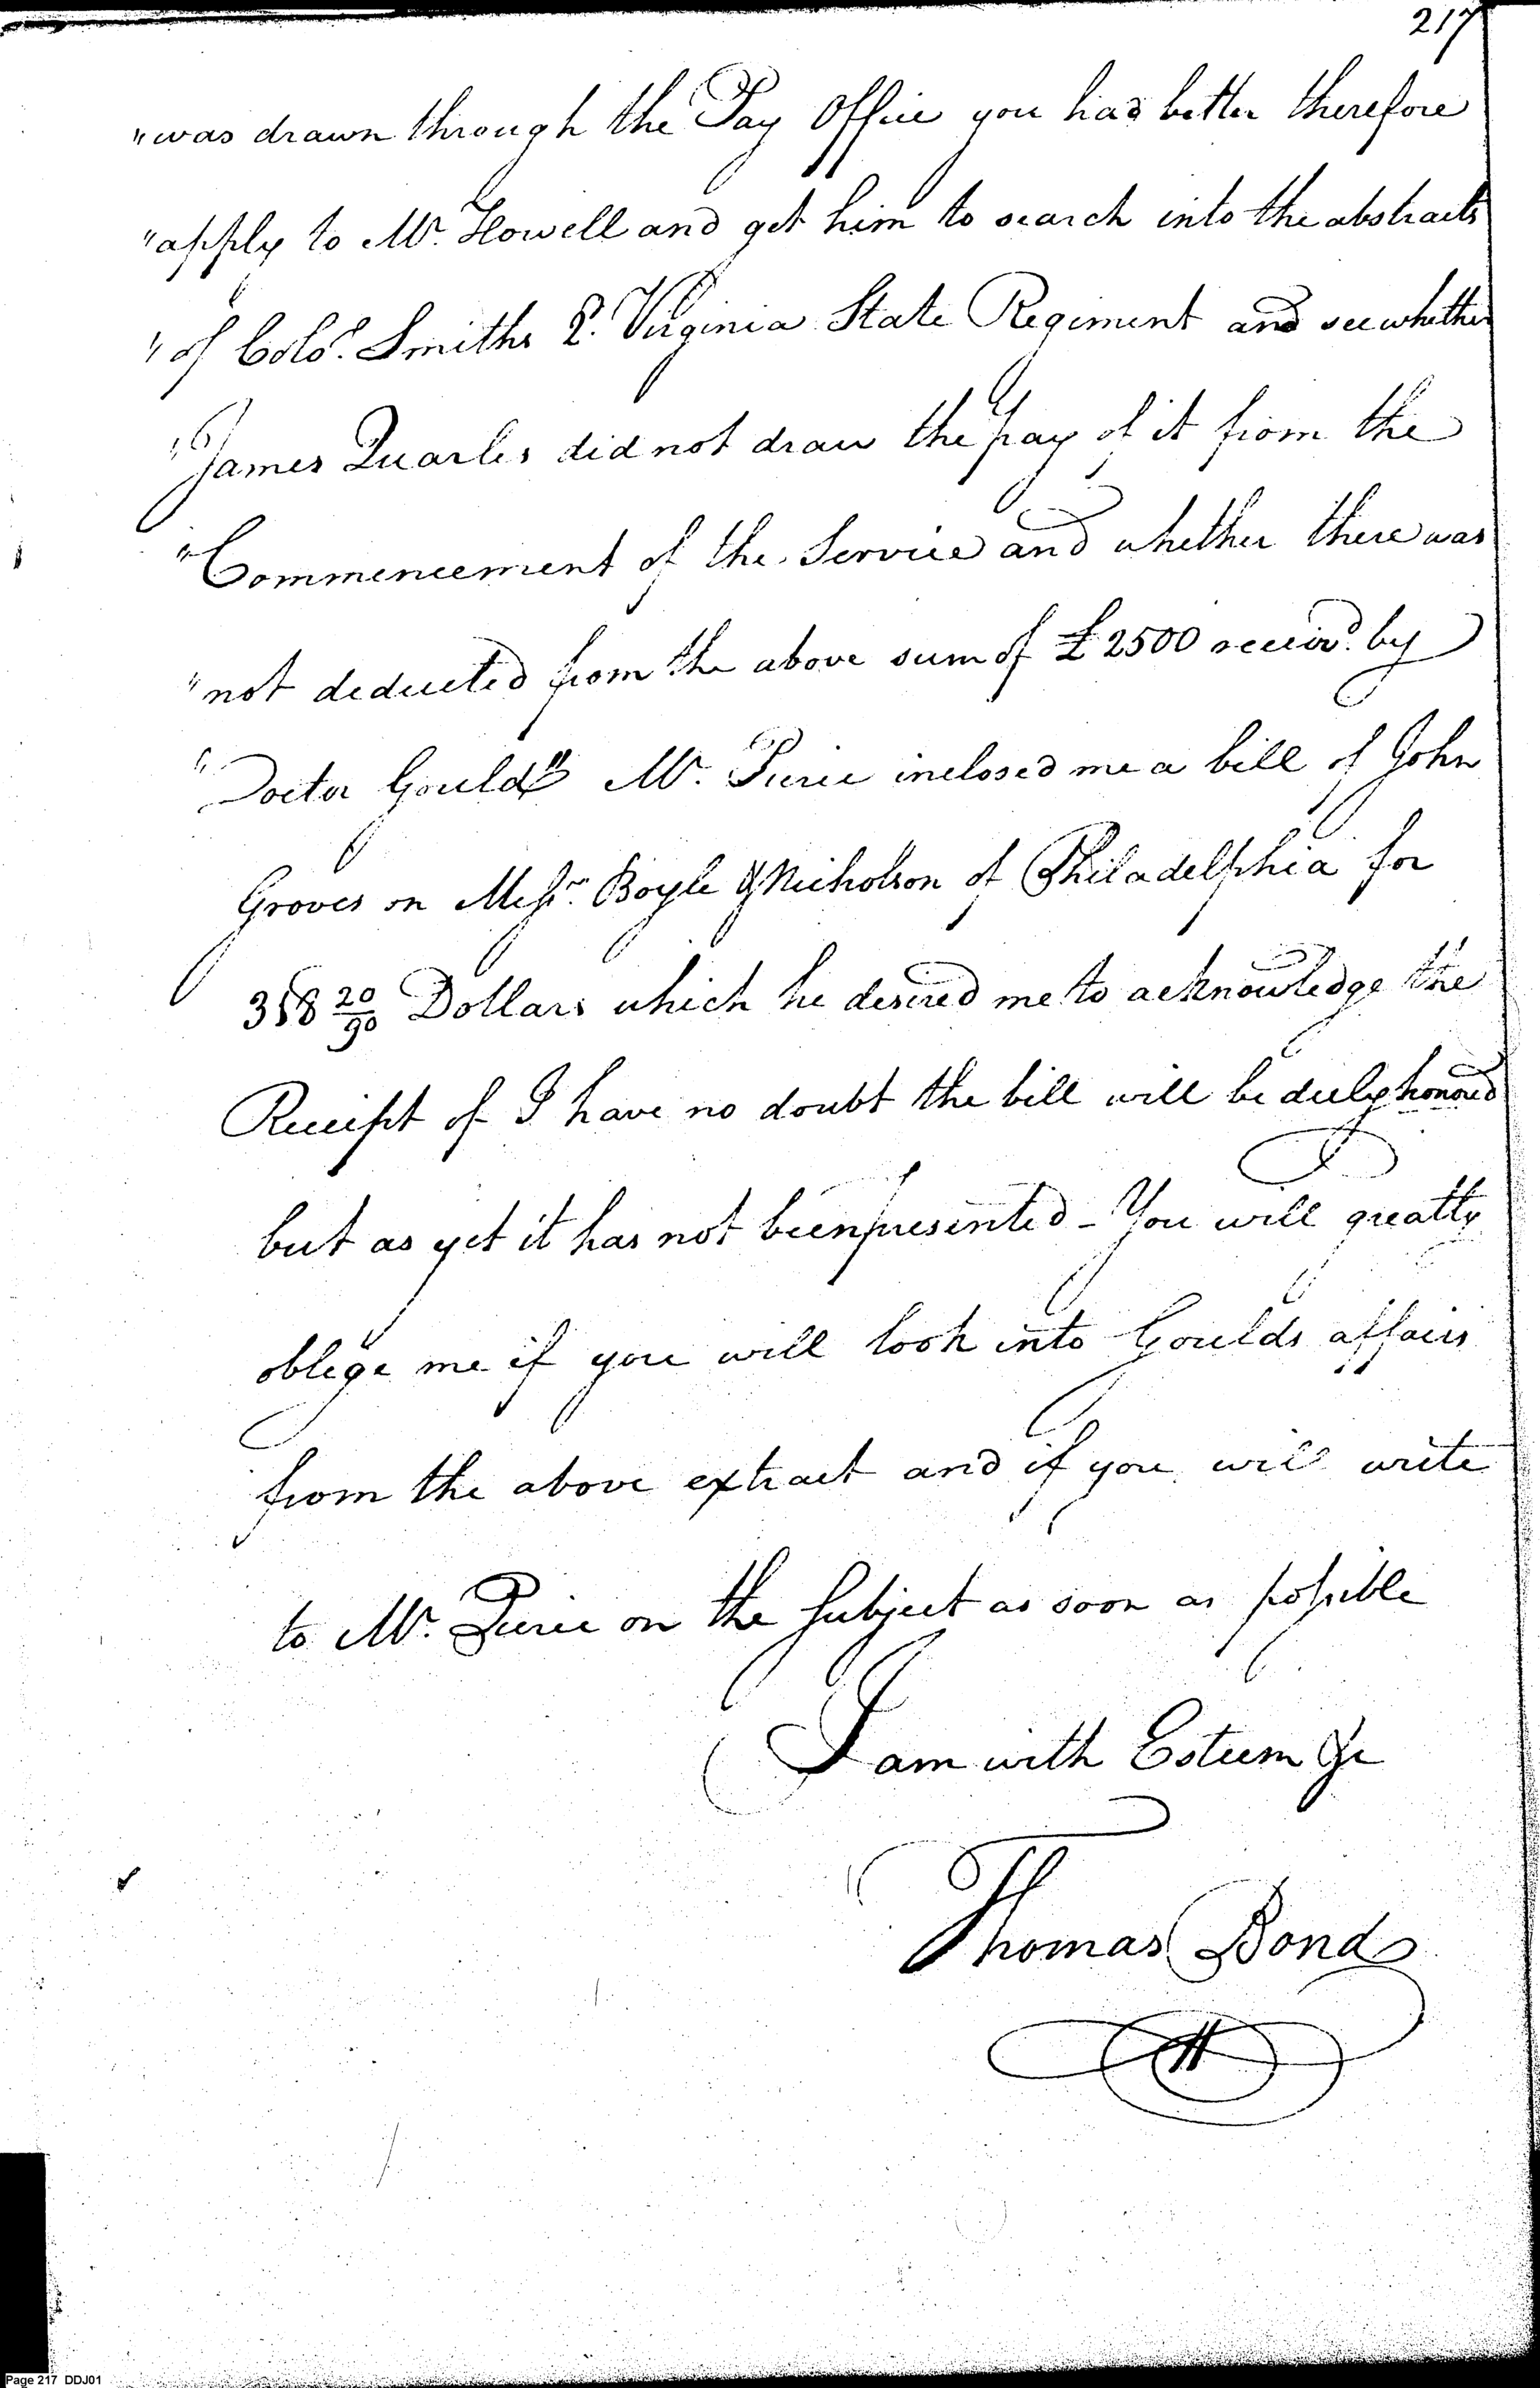 217
"was drawn through the Pay Office you had better therefore
"apply to Mr. Howell and get him to search into the abstracts
"of Colo. Smiths 2d. Virginia State Regiment and see whether
"James Quarles did not draw the pay of it from the
"Commencement of the Service and whether there was
"not deducted from the above sum of £2500 receivd. by
"Doctor Gould" Mr. Pierce inclosed me a bill of John
Groves on Messrs. Boyle & Nicholson of Philadelphia for
358 20/90 Dollars which he desired me to acknowledge the
Receipt of I have no doubt the bill will be duly honored
but as yet it has not been presented - You will greatly
oblige me if you will look into Goulds affairs
from the above extract and if you will write
to Mr. Pierce on the Subject as soon as possible
I am with Esteem &c
Thomas Bond
Page 217 DDJ01